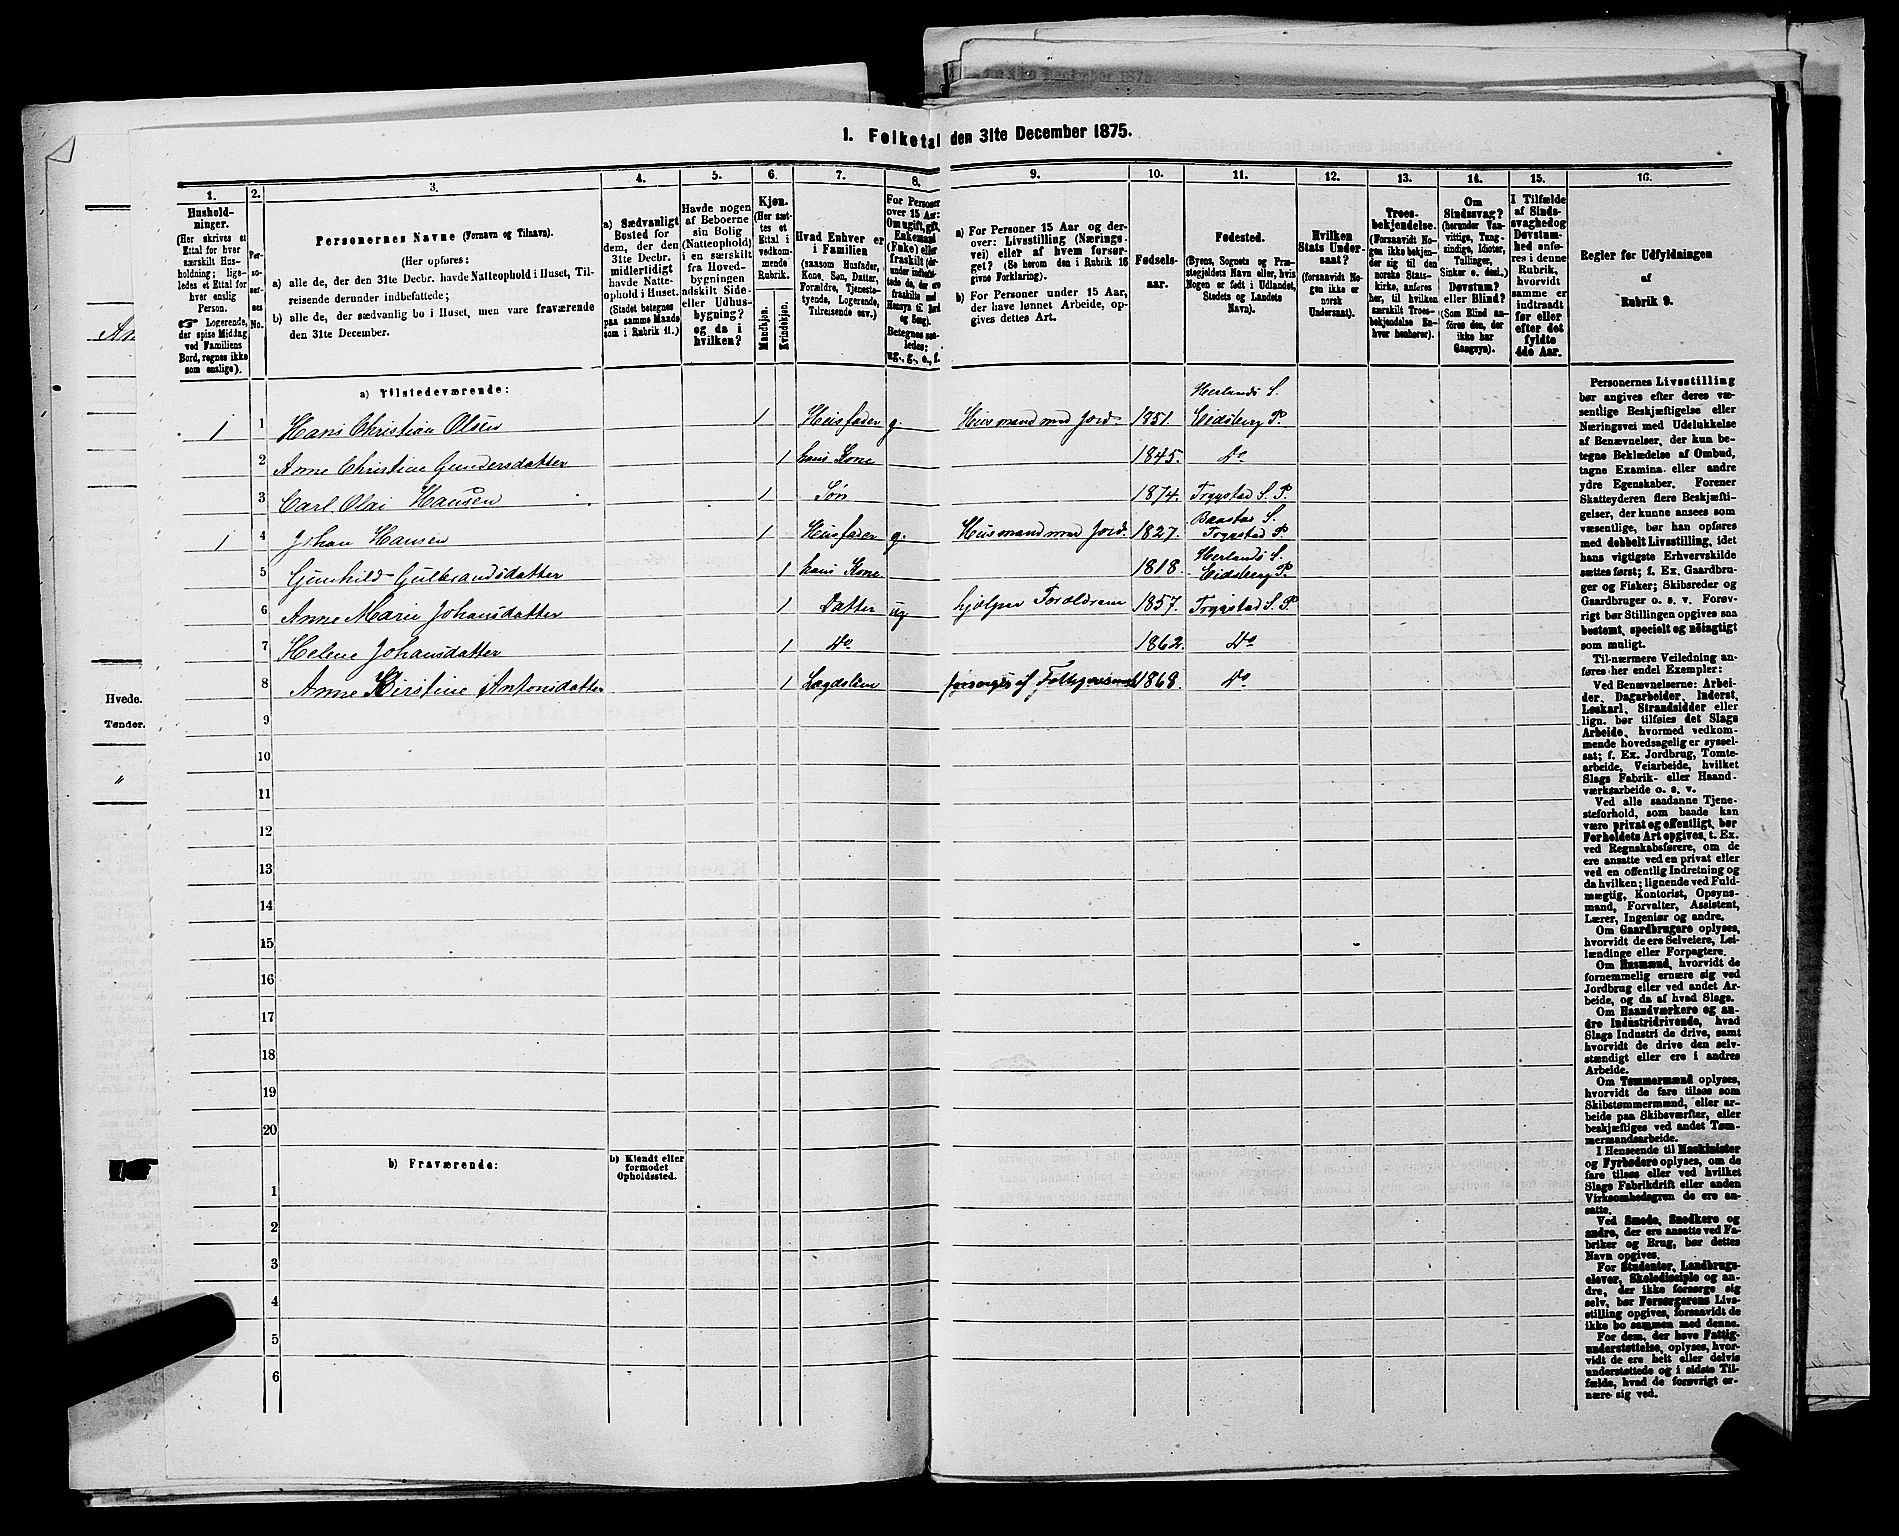 1. Folketal den 31te December 1875.
1.
Hushold-
ninger.
(Her skrives et
Ettal for hver
særskilt Hus-
holdning; lige-
ledes et Ettal for
hver enslig
Person.
☞ Logerende,
der spise Middag
ved Familiens
Bord, regnes ikke
som enslige).
2.
Per-
so-
ner-
nes
No.
3.
Personernes Navne (Fornavn og Tilnavn).
(Her opføres:
a) alle de, der den 31te Decbr. havde Natteophold i Huset, Til-
reisende derunder indbefattede;
b) alle de, der sædvanlig bo i Huset, men vare fraværende
den 31te December.
4.
a) Sædvanligt
Bosted for
dem, der den
31te Decbr.
midlertidigt
havde Natte-
ophold i Huset.
(Stedet betegnes
paa samme Maade
som i Rubrik 11.)
5.
Havde nogen
af Beboerne
sin Bolig
(Natteophold)
i en særskilt
fra Hoved-
bygningen
adskilt Side-
eller Udhus-
bygning?
og da i
hvilken?
6.
Kjøn.
(Her sæt-
tes et
Ettal i
vedkom-
mende
Rubrik.
Mandkjøn.
Kvindekjøn.
7.
Hvad Enhver er
i Familien
(saasom Husfader,
Kone, Søn, Datter,
Forældre, Tjeneste-
tyende, Logerende,
Tilreisende osv.)
8.
For Personer
over 15 Aar:
Om ugift, gift,
Enkemand
(Enke) eller
fraskilt
Betegnes saa-
ledes:
ug., g., e., f.
9.
a) For Personer 15 Aar og der-
over: Livsstilling (Nærings-
vei) eller af hvem forsør-
get? (Se herom den i Rubrik 16
givne Forklaring).
b) For Personer under 15 Aar,
der have lønnet Arbeide, op-
gives dettes Art.
10.
Fødsels-
aar.
11.
Fødested.
(Byens, Sognets og Præ-
stegjeldets Navn eller, hvis
Nogen er født i Udlandet,
Stedets og Landets
Navn).
12.
Hvilken
Stats Under-
saat?
(forsaavidt No-
gen ikke er
norsk
Undersaat).
13.
Troes-
bekjendelse.
(Forsaavidt No-
gen ikke bekjen-
der sig til den
norske Stats-
kirke, anføres
her, til hvilken
særskilt Troes-
bekjendelse En-
hver henhører).
14.
Om
Sindssvag?
(herunder Van-
vittige, Tung-
sindige, Idioter,
Tullinger,
Sinker o. desl.)
Døvstum?
eller Blind?
(Som Blind an-
føres den, der
ikke har
Gangsyn).
15.
I Tilfælde
af Sinds-
svaghed og
Døvstum-
hed anfø-
res i denne
Rubrik,
hvorvidt
samme er
indtraadt
før eller
efter det
fyldte
4de Aar.
16.
Regler for Udfyldningen
af
Rubrik 9.
a) Tilstedeværende:
1 1 Hans Christian Olsen 1 Husfader g. Husmand med Jord. 1851. Herlands S. Eidsberg P.
2 Anne Christine Gundersdatter 1 hans Kone 1845. Do
3 Carl Olai Hansen 1 Søn 1874. Trygstad S. P.
1 4 Johan Hansen 1 Husfader g. Husmand med Jord. 1827. Baastad S. Trygstad P.
5 Gunhild Gulbrandsdatter 1 hans Kone 1818. Herlands S. Eidsberg P.
6 Anne Marie Johansdatter 1 Datter ug hjelper Forældrene 1857. Trygstad S. P
7 Helene Johansdatter 1 Do 1862. Do
8 Anne Kirstine Antonsdatter 1 Lægdslem forsørges af 1868. Do
9
10
11
12
13
14
15
16
17
18
19
20
b) Fraværende:
b) Kjendt eller
formodet
Opholdssted.
1
2
3
4
5
6
Personernes Livsstilling
bør angives efter deres væ-
sentlige Beskjæftigelse eller
Næringsvei med Udelukkelse
af Benævnelser, der kun be-
tegne Beklædelse af Ombud,
tagne Examina eller andre
ydre Egenskaber. Forener
Skatteyderen flere Beskjæfti-
gelser, der kunne ansees som
væsentlige, bør han opføres
med dobbelt Livsstilling, idet
hans vigtigste Erhvervskilde
sættes først; f. Ex. Gaardbru-
ger og Fisker; Skibsreder og
Gaardbruger o. s. v. Forøv-
rigt bør Stillingen opgives saa
bestemt, specielt og nøiagtigt
som muligt.
Til nærmere Veiledning an-
føres her endel Exempler:
Ved Benævnelserne: Arbei-
der, Dagarbeider, Inderst,
Løskarl, Strandsidder eller
lign. bør tilføies det Slags
Arbeide, hvormed vedkom-
mende hovedsagelig er syssel-
sat; f. Ex. Jordbrug, Tomte-
arbeide, Veiarbeide, hvilket
Slags Fabrik- eller Haand-
værksarbeide o. s. v.
Ved alle saadanne Tjene-
steforhold, som baade kan
være privat og offentligt, bør
Forholdets Art opgives, t. Ex.
ved Regnskabsførere, om de
ere ansatte ved en privat eller
ved en offentlig Indretning og
da hvilken; lignende ved Fuld-
mægtig, Kontorist, Opsyns-
mand, Forvalter, Assistent,
Lærer, Ingeniør og andre.
Om Gaardbrugere oplyses,
hvorvidt de ere Selveiere, Lei-
lændinge eller Forpagtere.
Om Husmænd, hvorvidt de
fornemmelig ernære sig ved
Jordbrug eller ved andet Ar-
beide, og da af hvad Slags.
Om Haandværkere og an-
dre Industridrivende, hvad
Slags Industri de drive, samt
hvorvidt de drive den selv-
stændigt eller ere i andres
Arbeide.
Om Tømmermænd oplyses,
hvorvidt de fare tilsøs som
Skibstømmermænd, eller ar-
beide paa Skibsværfter, eller
beskjæftiges ved andet Tøm-
mermandsarbeide.
I Henseende til Maskinister
og Fyrbødere oplyses, om de
fare tilsøs eller ved hvilket
Slags Fabrikdrift eller anden
Virksomhedsgren de ere an-
satte.
Ved Smede, Snedkere og
andre, der ere ansatte ved Fa-
briker og Brug, bør dettes
Navn opgives.
For Studenter, Landbrugs-
elever, Skoledisciple og an-
dre, der ikke forsørge sig
selv, bør Forsørgerens Livs-
stilling opgives, forsaavidt de
ikke bo sammen med denne.
For dem, der have Fattig-
understøttelse, oplyses, hvor-
vidt de ere helt eller delvis
understøttede og i sidste Til-
fælde, hvad de forøvrigt er-
nære sig ved.
Hvede.
Tønder.
"